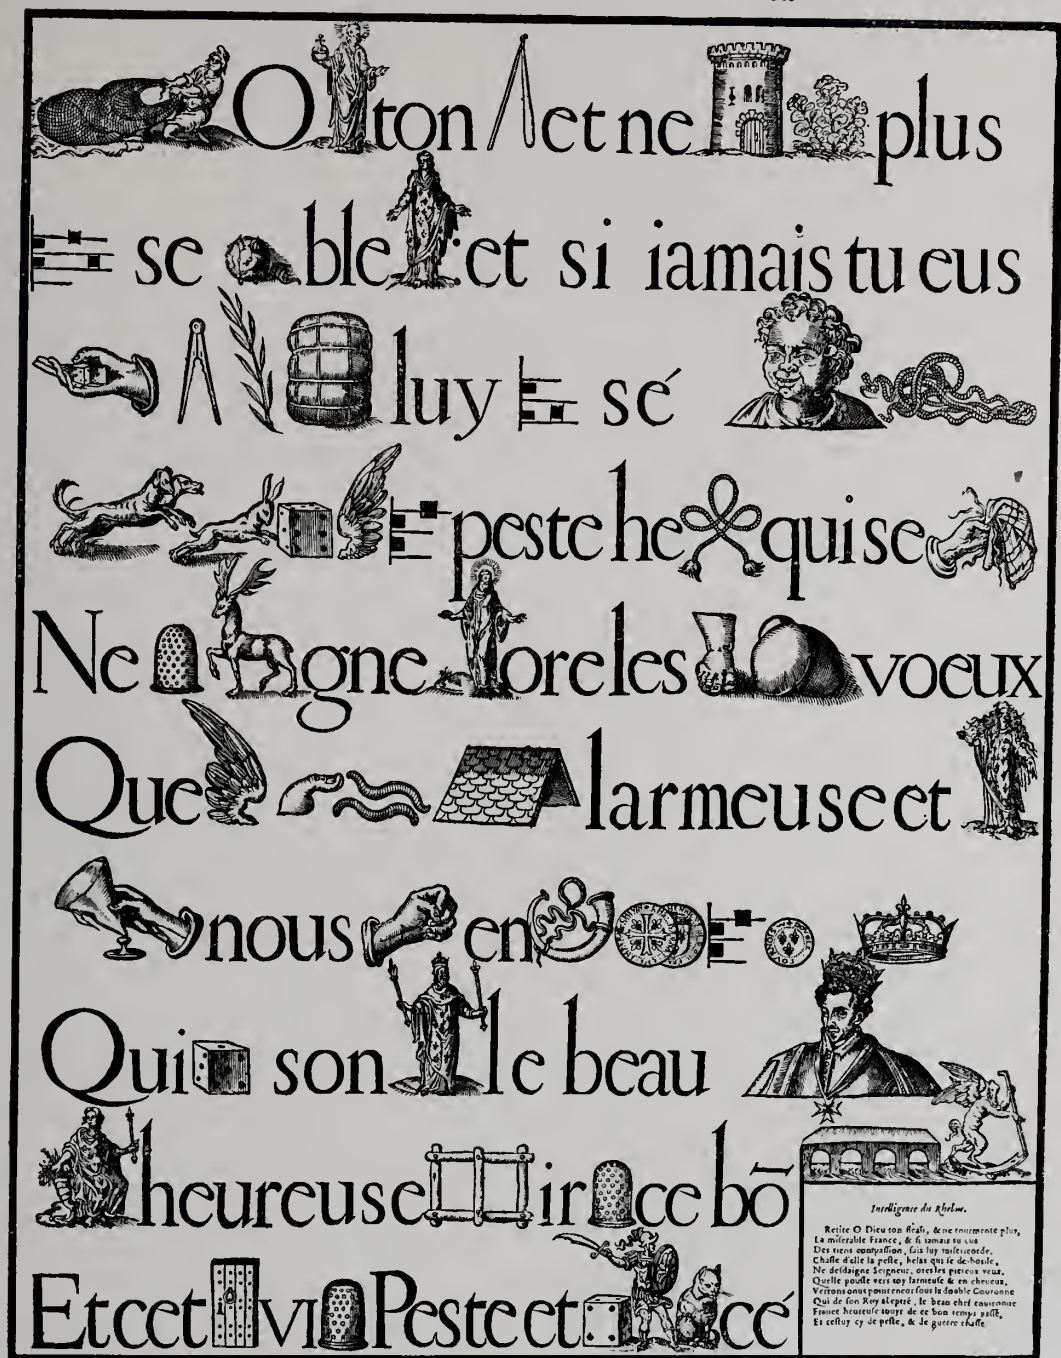 O ton et ne plus
se ble et si iamais tu eus
luy sé
peste he qui se
Ne gne ore les voeux
Que larmeuse et
nous en
Qui son le beau
heureuse ir ce bō
Et cet VI Peste et cé
Intelligence du Rhebus.
Retire O Dieu ton fleau, & ne tourmente plus,
La miserable France, & si iamais tu eus
Des tiens compassion, fais luy misericorde,
Chasse d'elle la peste, helas qui se deborde,
Ne desdaigne Seigneur, ores les piteux veux,
Quelle pousse vers toy larmeuse & en cheveux,
Verrons onus point encor sous la double Couronne
Qui de son Roy sceptré, le beau chef environne
France heureuse iouyr de ce bon temps passé,
Et cestuy cy de peste, & de guerre chassé